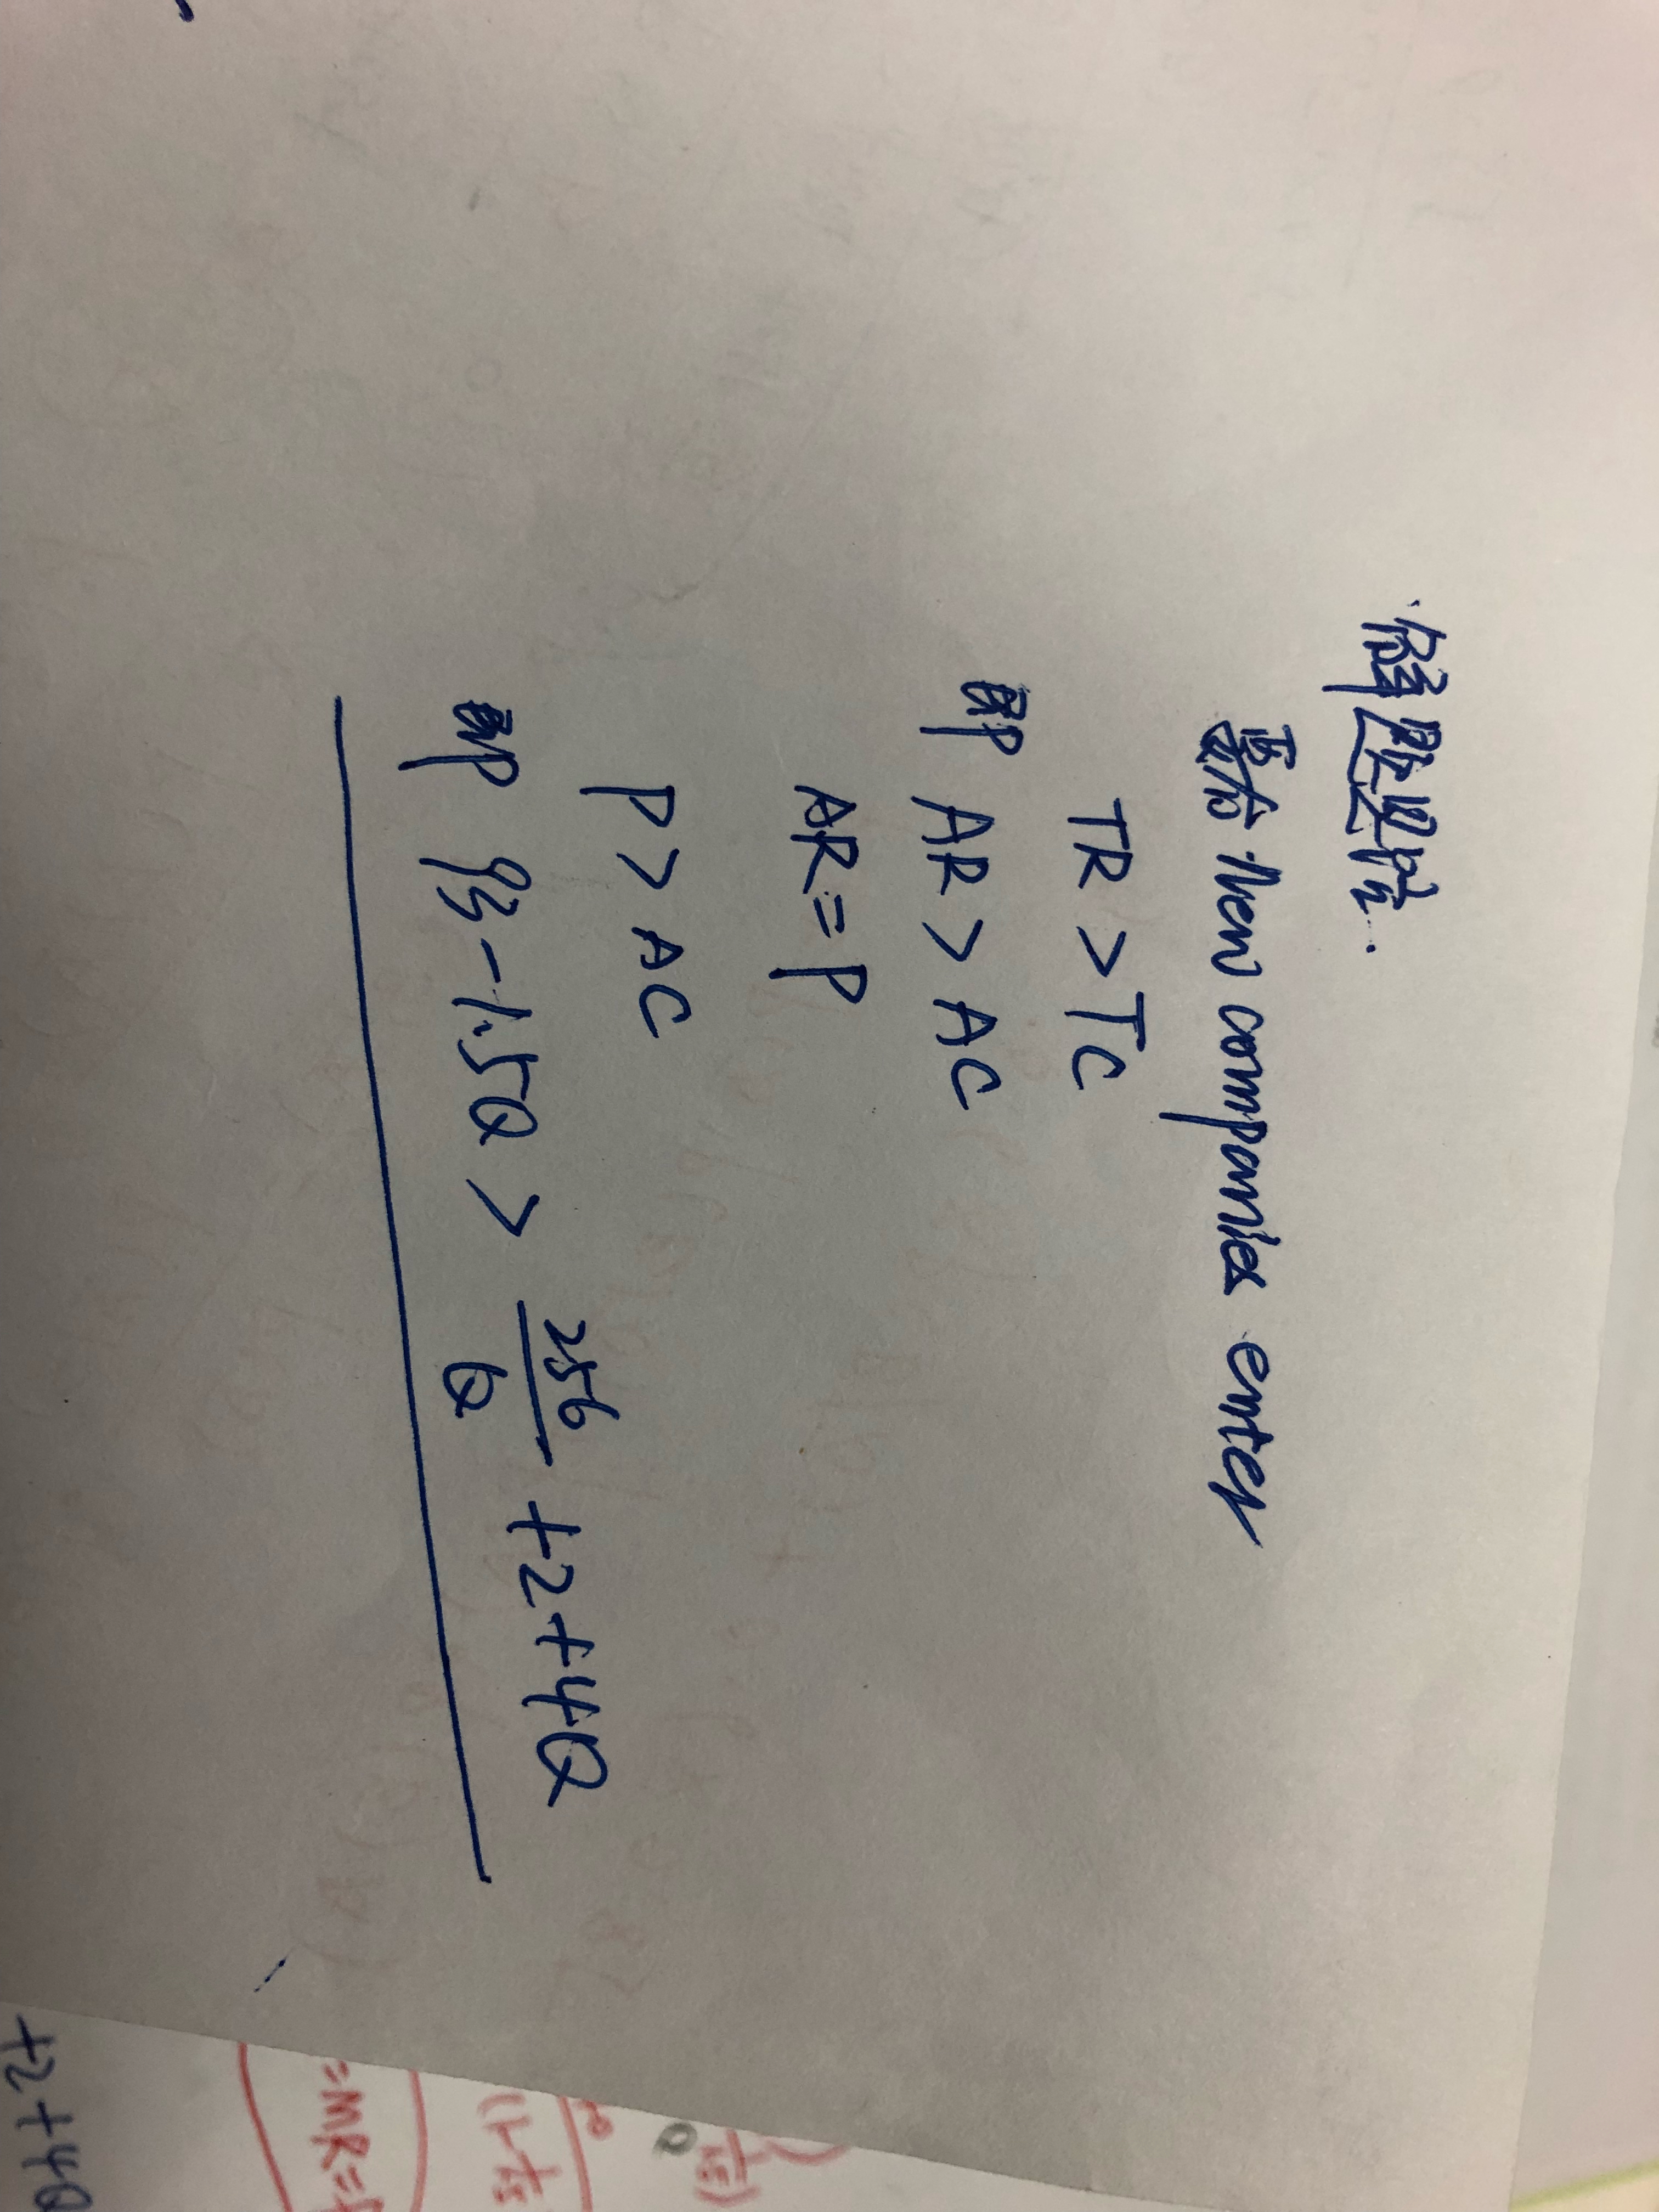 解题思路.
要有 new companies enter
TR > TC
即 AR > AC
AR = P
P > AC
即 93 - 1.5Q > 256/Q + 2 + 4Q
+2+4Q
=MR=